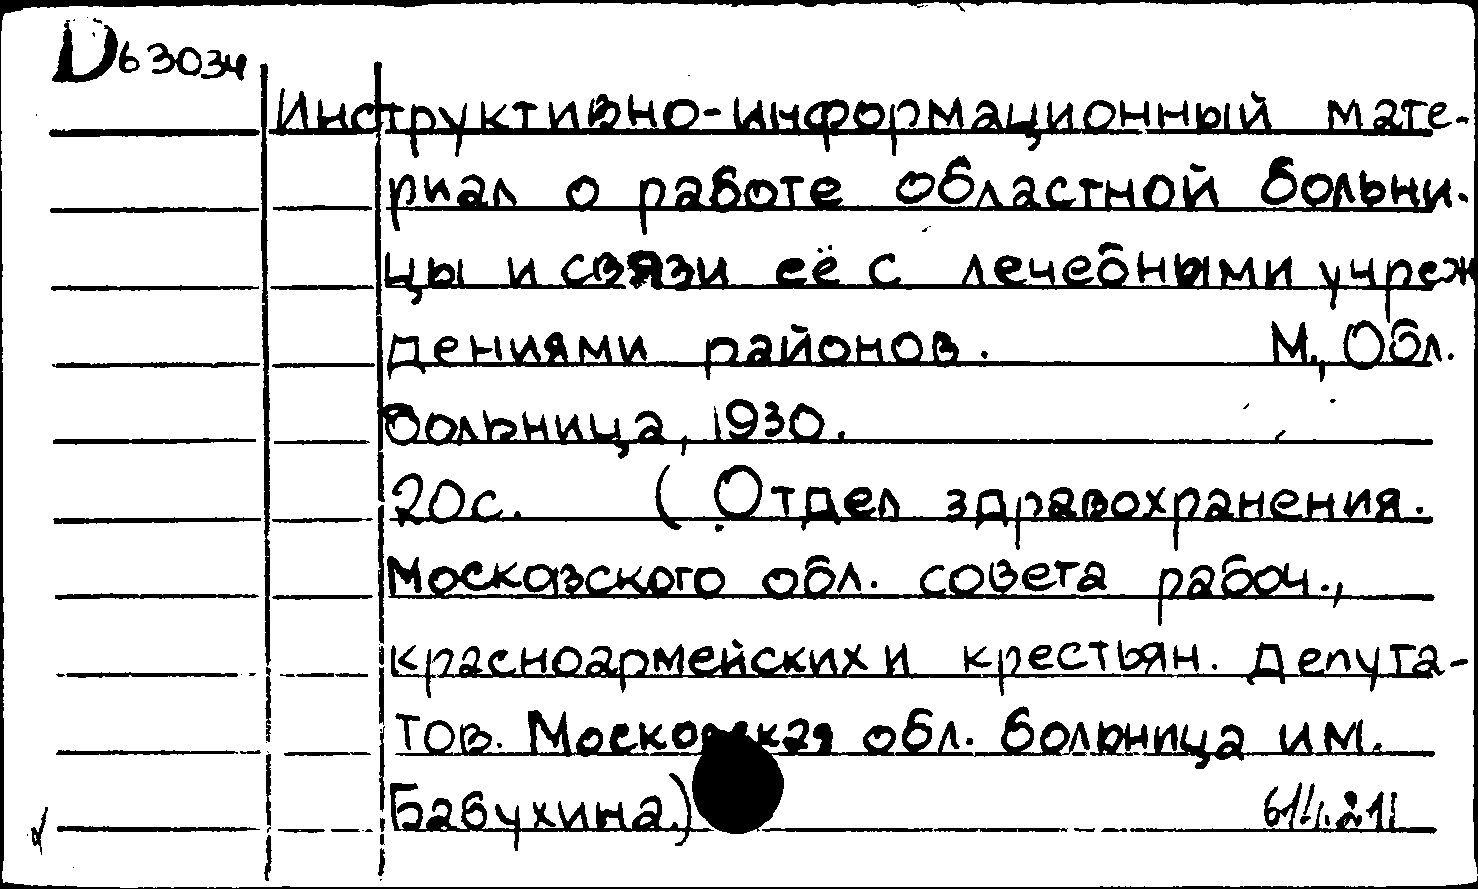 D63034
Инструктивно-информационный мате-
риал о работе областной больни-
цы и связи её с лечебными учреж
дениями районов. М., Обл.
больница, 1930.
20с. (Отдел здравохранения.
Московского обл. совета рабоч.,
красноармейских и крестьян. депута-
тов. Московская обл. больница им.
Бабухина.)
614.211